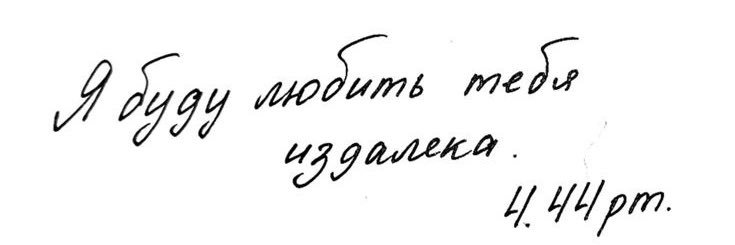 Я буду любить тебя
издалека.
4.44 pm.